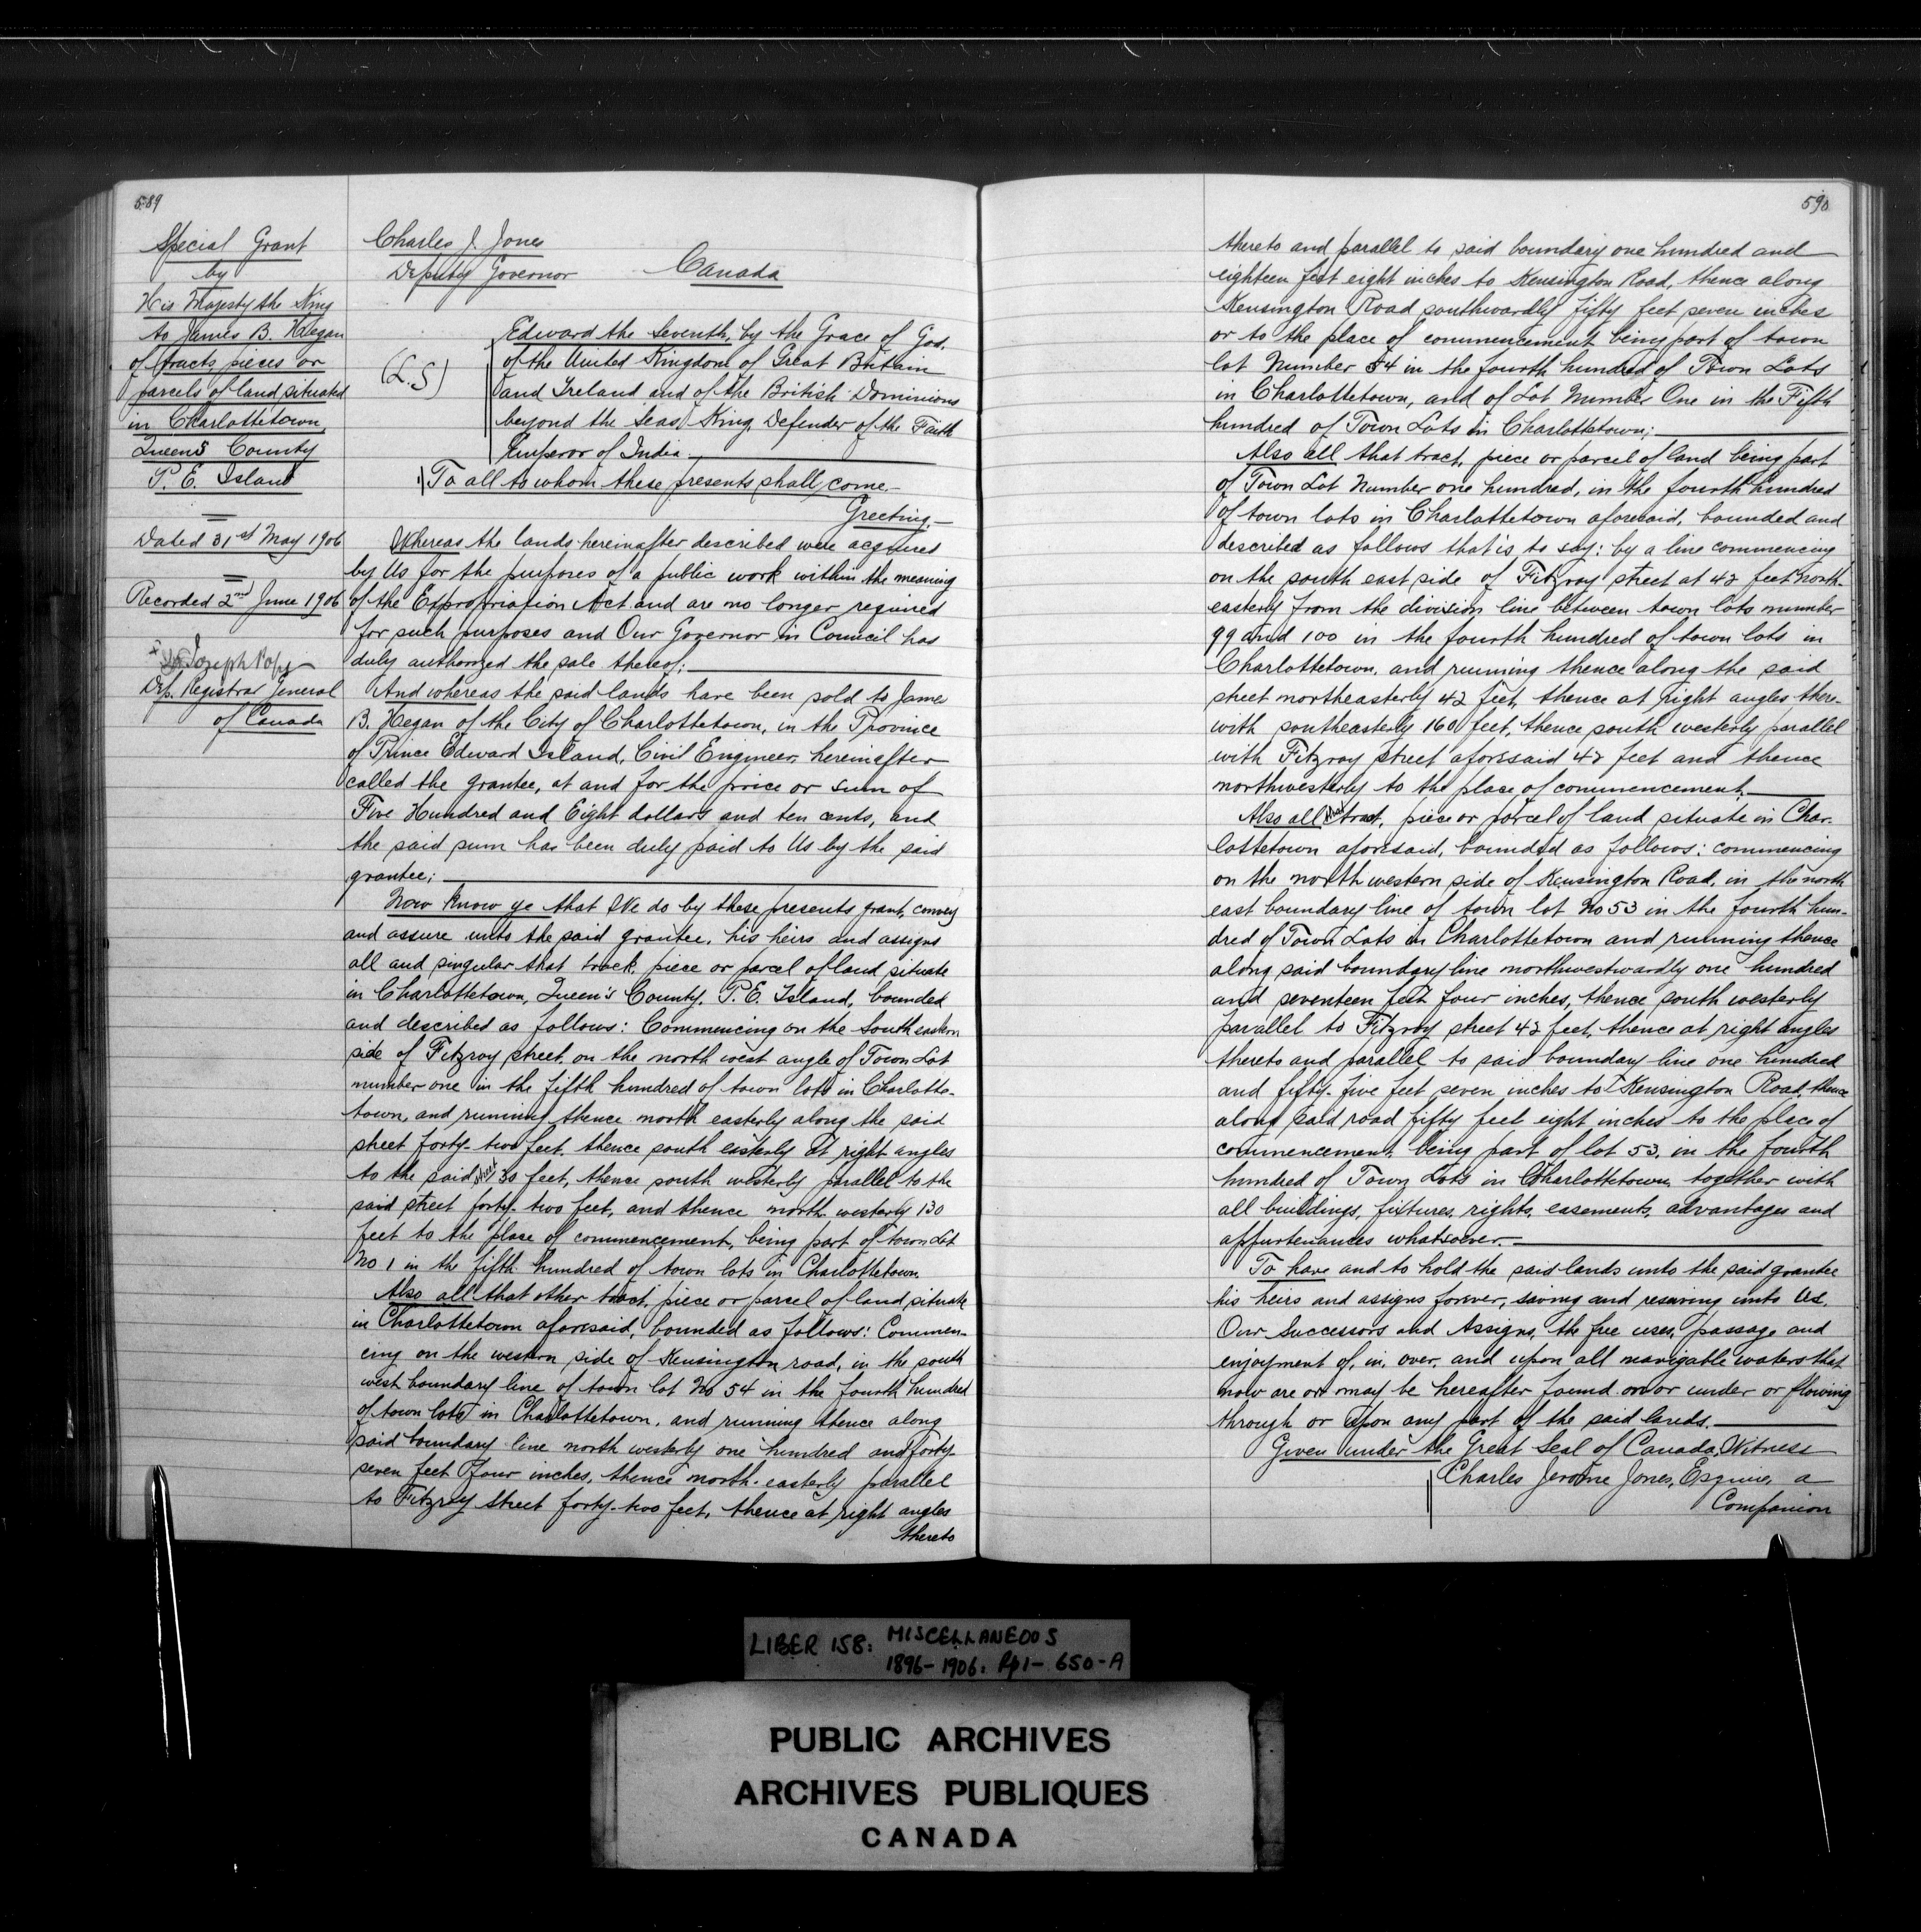 589
Special Grant
by
His Majesty the King
to James B. Hegan
of tracts pieces or
parcels of land situated
in Charlottetown,
Queens County
P. E. Island
Dated 31st May 1906
Recorded 2nd June 1906
Joseph Pope
Dep. Registrar General
of Canada
Charles J. Jones
Deputy Governor Canada
(L.S)
Edward the Seventh, by the Grace of God,
of the United Kingdom of Great Britain
and Ireland and of the British Dominions
beyond the Seas King, Defender of the Faith
Emperor of India
To all to whom these presents shall come
Greeting,
Whereas the lands hereinafter described were acquired
by Us for the purposes of a public work within the meaning
of the Expropriation Act and are no longer required
for such purposes and Our Governor in Council has
duly authorized the sale thereof;
And whereas the said lands have been sold to James
B. Hegan of the City of Charlottetown, in the Province
of Prince Edward Island, Civil Engineer, hereinafter
called the grantee, at and for the price or sum of
Five Hundred and Eight dollars and ten cents, and
the said sum has been duly paid to Us by the said
grantee;
Now Know ye that We do by these presents grant, convey
and assure unto the said grantee, his heirs and assigns
all and singular that track, piece or parcel of land situate
in Charlottetown, Queen's County, P. E. Island, bounded
and described as follows: Commencing on the South eastern
side of Fitzroy street, on the north west angle of Town Lot
number one in the fifth hundred of town lots in Charlotte-
town, and running thence north easterly along the said
street forty-two feet, thence south easterly at right angles
to the said street 30 feet, thence south westerly parallel to the
said street forty-two feet, and thence north westerly 130
feet to the place of commencement, being part of Town Lot
No 1 in the fifth hundred of town lots in Charlottetown.
Also all that other tract, piece or parcel of land situate
in Charlottetown aforesaid, bounded as follows: Commen-
cing on the western side of Kensington road, in the south
west boundary line of town lot No 54 in the fourth hundred
of town lots in Charlottetown, and running thence along
said boundary line north westerly one hundred and forty-
seven feet four inches, thence north-easterly parallel
to Fitzroy Street forty-two feet, thence at right angles
thereto
590
thereto and parallel to said boundary one hundred and
eighteen feet eight inches to Kensington Road, thence along
Kensington Road southwardly fifty feet seven inches
or to the place of commencement being part of town
lot Number 54 in the fourth hundred of Town Lots
in Charlottetown, and of Lot Number One in the Fifth
hundred of Town Lots in Charlottetown;
Also all that tract, piece or parcel of land being part
of Town Lot Number one hundred, in the fourth hundred
of town lots in Charlottetown aforesaid, bounded and
described as follows that is to say: by a line commencing
on the south east side of Fitzroy street at 42 feet north-
easterly from the division line between town lots number
99 and 100 in the fourth hundred of town lots in
Charlottetown, and running thence along the said
street northeasterly 42 feet, thence at right angles there-
with southeasterly 160 feet, thence south westerly parallel
with Fitzroy street aforesaid 42 feet and thence
northwesterly to the place of commencement.
Also all that tract, piece or parcel of land situate in Char-
lottetown aforesaid, bounded as follows: commencing
on the north western side of Kensington Road, in the north
east boundary line of town lot No 53 in the fourth hun-
dred of Town Lots in Charlottetown and running thence
along said boundary line northwestwardly one hundred
and seventeen feet four inches, thence south westerly
parallel to Fitzroy street 42 feet, thence at right angles
thereto and parallel to said boundary line one hundred
and fifty-five feet seven inches to Kensington Road, thence
along said road fifty feet eight inches to the place of
commencement, being part of lot 53, in the fourth
hundred of Town Lots in Charlottetown together with
all buildings, fixtures, rights, easements, advantages and
appurtenances whatsoever.
To have and to hold the said lands unto the said grantee
his heirs and assigns forever, saving and reserving unto Us,
Our Successors and Assigns, the free uses, passage and
enjoyment of, in, over, and upon all navigable waters that
now are or may be hereafter found on or under or flowing
through or upon any part of the said lands.
Given under the Great Seal of Canada, Witness
Charles Jerome Jones, Esquire, a
Companion
LIBER 158: MISCELLANEOUS
1896-1906: Pp 1-650-A
PUBLIC ARCHIVES
ARCHIVES PUBLIQUES
CANADA